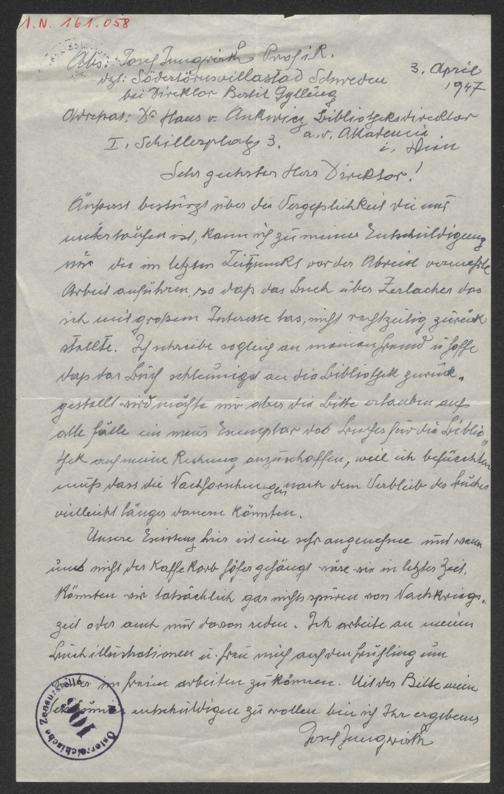 I.N. 161.058
Abs: Josef Jungwirth Prof. i. R.
dzt: Södertörnsvillastad Schweden
bei Direktor Bertil Gylling
3. April
1947
Adresat: Dr Hans v. Ankwicz Bibliotheksdirektor
a. d. Akademie
I. Schillerplatz 3. i. Wien
Sehr geehrter Herr Direktor!
Äußerst bestürzt über die Vergeßlichkeit die mir
unterlaufen ist, kann ich zu meiner Entschuldigung
nur die im letzten Zeitpunkt vor der Abreise vermehrte
Arbeit anführen, so daß das Buch über Zerlacher das
ich mit großem Interesse las, nicht rechtzeitig zurück
stellte. Ich schreibe sogleich an meinen Freund u. hoffe
daß das Buch schleunigst an die Bibliothek zurück-
gestellt wird möchte mir aber die Bitte erlauben auf
alle Fälle ein neues Exemplar des Buches für die Biblio
thek auf meine Rechnung anzuschaffen, weil ich befürchten
muß dass die Nachforschungen nach dem Verbleib des Buches
vielleicht länger dauern könnten.
Unsere Existenz hier ist eine sehr angenehme und wenn
uns nicht der Kaffekorb höher gehängt wäre wie in letzter Zeit,
könnten wir tatsächlich gar nichts spüren von Nachkriegs-
zeit oder auch nur davon reden. Ich arbeite an meinen
Buchillustrationen u. freu mich auf den Frühling um
wieder im freien arbeiten zu können. Mit der Bitte mein
entschuldigen zu wollen bin ich Ihr ergebener
Josef Jungwirth
Österreichische Zensurstelle